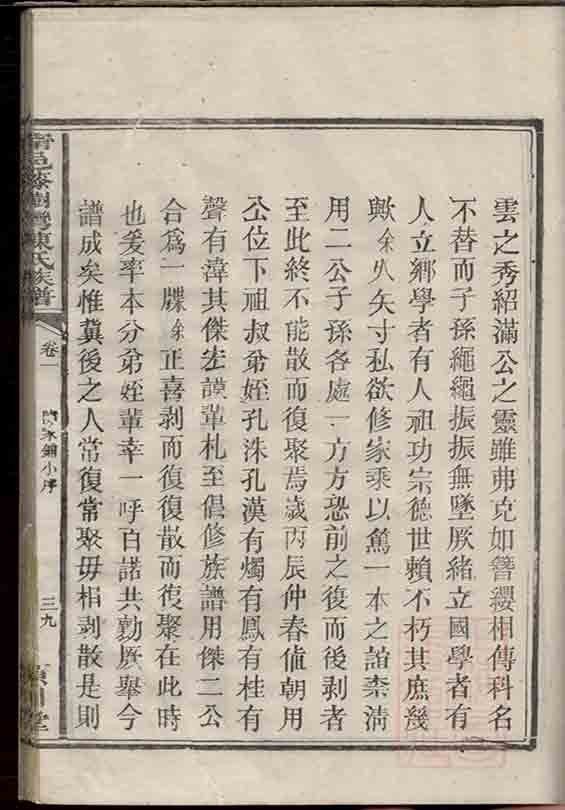 雲之秀紹滿公之靈雖弗克如簪纓相傳科名
不替而子孫繩繩振振無墜厥緒立國學者有
人立鄉學者有人祖功宗德世賴不朽其庶幾
歟余久矢寸私欲修家乘以篤一本之誼柰清
用二公子孫各處一方方恐前之復而後剥者
至此終不能散而復聚焉歲丙辰仲春値朝用
公位下祖叔弟姪孔洙孔漢有燭有鳳有桂有
聲有湋其傑宏謨輩札至倡修族譜用傑二公
合爲一牒余正喜剥而復復散而復聚在此時
也爰率本分弟姪輩幸一呼百諾共勷厥舉今
譜成矣惟冀後之人常復常聚毋相剥散是則
陳氏族譜
卷一
小序
三九
堂